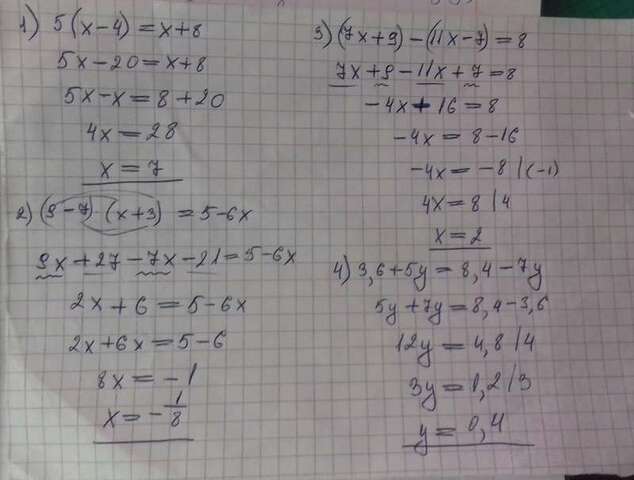 1) 5(x-4)=x+8
5x-20=x+8
5x-x=8+20
4x=28
x=7
2) (9-7)(x+3)=5-6x
9x+27-7x-21=5-6x
2x+6=5-6x
2x+6x=5-6
8x=-1
x=-1/8
3) (7x+9)-(11x-7)=8
7x+9-11x+7=8
-4x+16=8
-4x=8-16
-4x=-8 |(-1)
4x=8 |4
x=2
4) 3,6+5y=8,4-7y
5y+7y=8,4-3,6
12y=4,8 |4
3y=1,2 |3
y=0,4